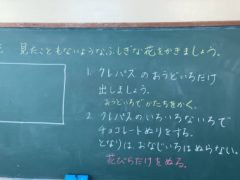 見たこともないようなふしぎな花をかきましょう。
1. クレパスのおうどいろだけ
出しましょう。
おうどいろでかたちをかく。
2. クレパスのいろいろないろで
チョコレートぬりをする。
となりは、おなじいろはぬらない。
花びらだけをぬる。